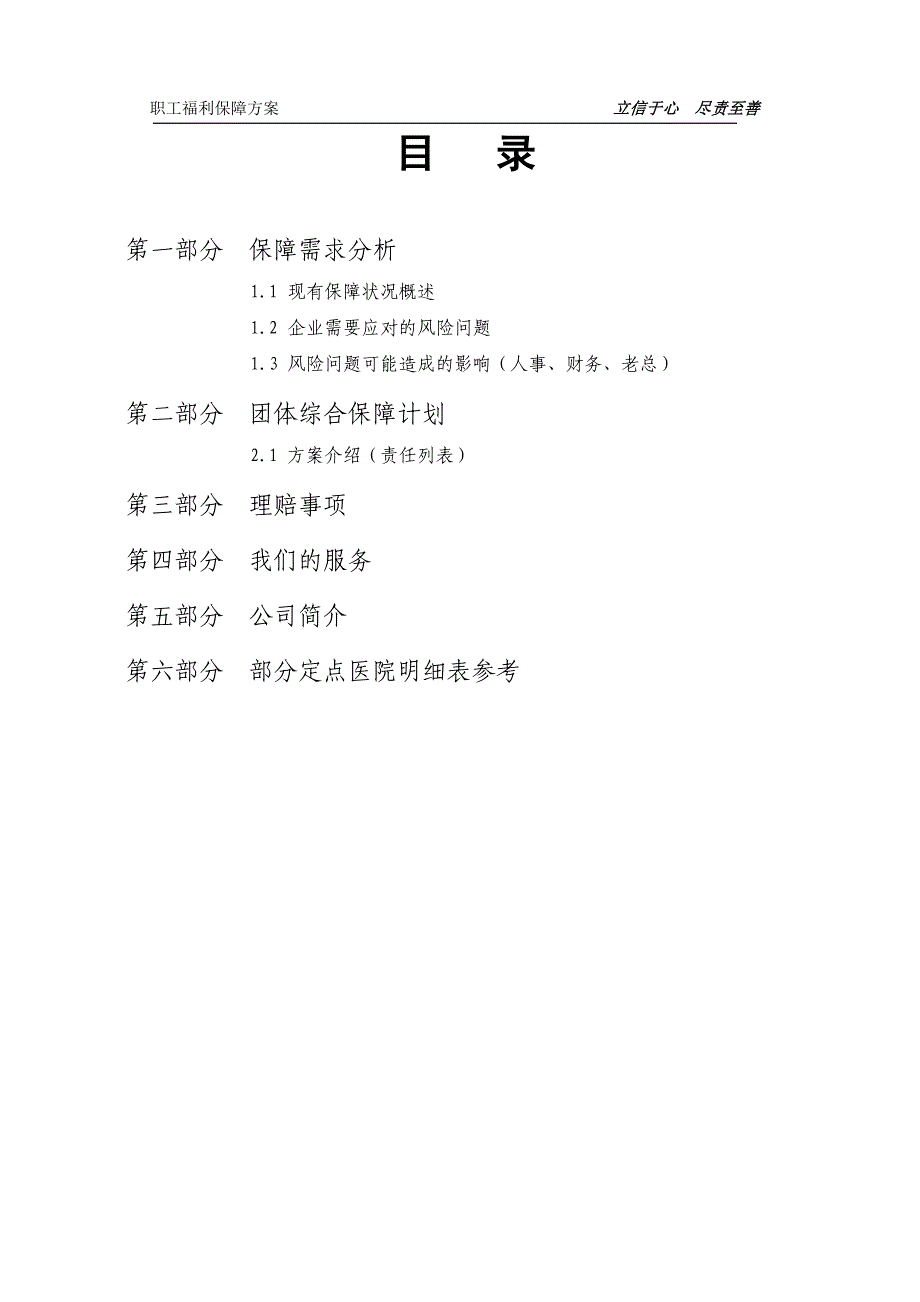 职工福利保障方案 立信于心 尽责至善
目 录
第一部分 保障需求分析
1.1 现有保障状况概述
1.2 企业需要应对的风险问题
1.3 风险问题可能造成的影响（人事、财务、老总）
第二部分 团体综合保障计划
2.1 方案介绍（责任列表）
第三部分 理赔事项
第四部分 我们的服务
第五部分 公司简介
第六部分 部分定点医院明细表参考